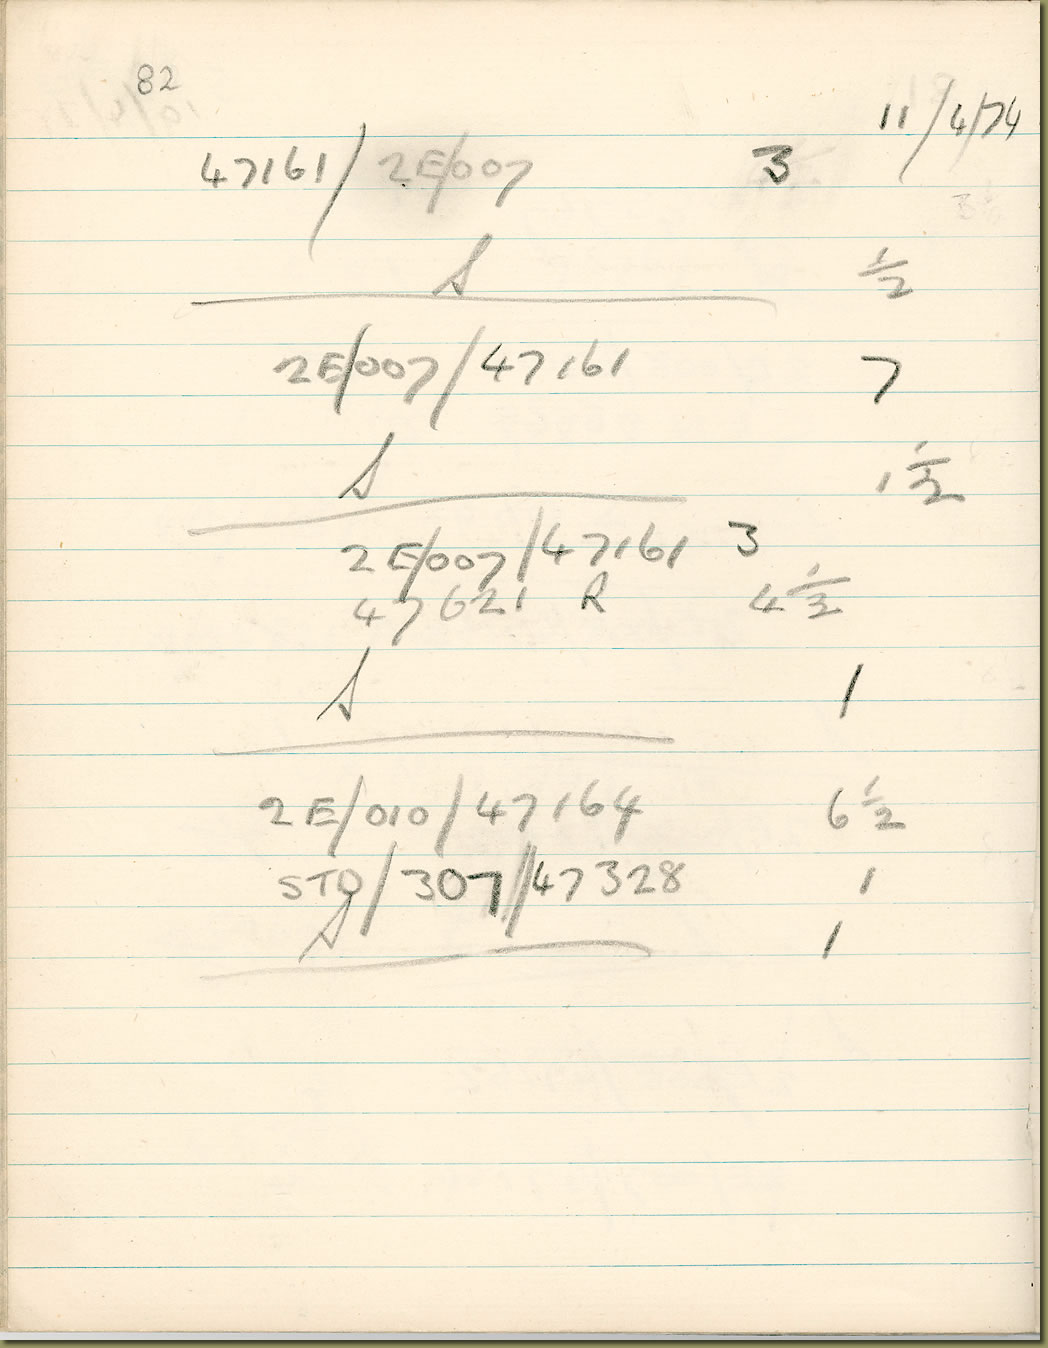 82
11/4/74
47161/2E/007 3
S ½
2E/007/47161 7
S 1½
2E/007/47161 3
47621 R 4½
S 1
2E/010/47164 6½
STO/307//47328 1
S 1